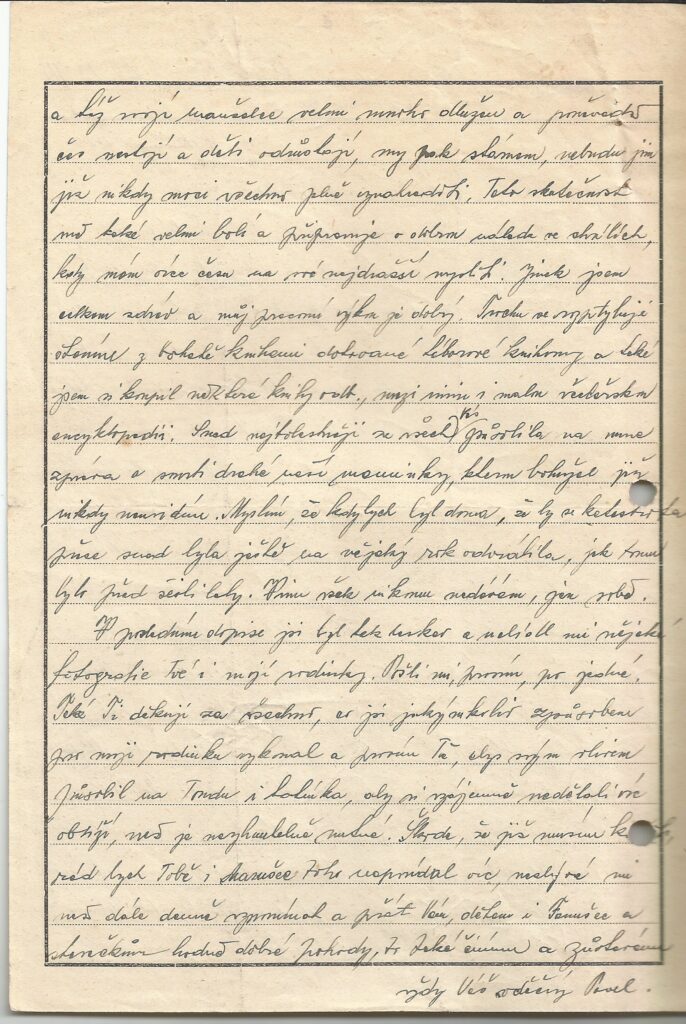 a též svojí manželce velmi mnoho dlužen a poněvadž
čas nestojí a děti odrůstají, my pak stárnem, nebudu jim
již nikdy moci všechno plně vynahraditi. Tato skutečnost
mě také velmi bolí a připravuje o dobrou náladu ve chvílích,
kdy mám více času na své nejdražší mysliti. Jinak jsem
celkem zdráv a můj pracovní výkon je dobrý. Trochu se rozptyluji
čtením z bohatě knihami dotované táborové knihovny a také
jsem si koupil některé knihy, mezi nimi i malou všeobecnou
encyklopedii. Snad nejbolestněji ze všech věcí působila na mne
zpráva o smrti drahé naší maminky, kterou bohužel již
nikdy neuvidím. Myslím, že kdybych byl doma, že by se katastrofa
snad byla ještě na nějaký rok odvrátila, jak tomu
bylo před šesti lety. Vinu však nikomu nedávám, jen sobě.
V posledním dopise jsi byl tak laskav a nabídl mi nějaké
fotografie Tvé i mojí rodinky. Pošli mi, prosím, po jedné.
Také Ti děkuji za všechno, co jsi jakýmkoliv způsobem
pro moji rodinku vykonal a prosím Tě, abys svým vlivem
působil na Tondu i tatínka, aby si vzájemně nedělali víc
obtíží, než je nezbytně nutné. Škoda, že již musím končit,
rád bych Tobě i Mařušce toho napovídal víc, nezbývá mi
než dále denně vzpomínat a přát Vám, dětem i Fanušce a
stařečkům hodně dobré pohody, to také činím a zůstávám
vždy Váš vděčný Pavel.